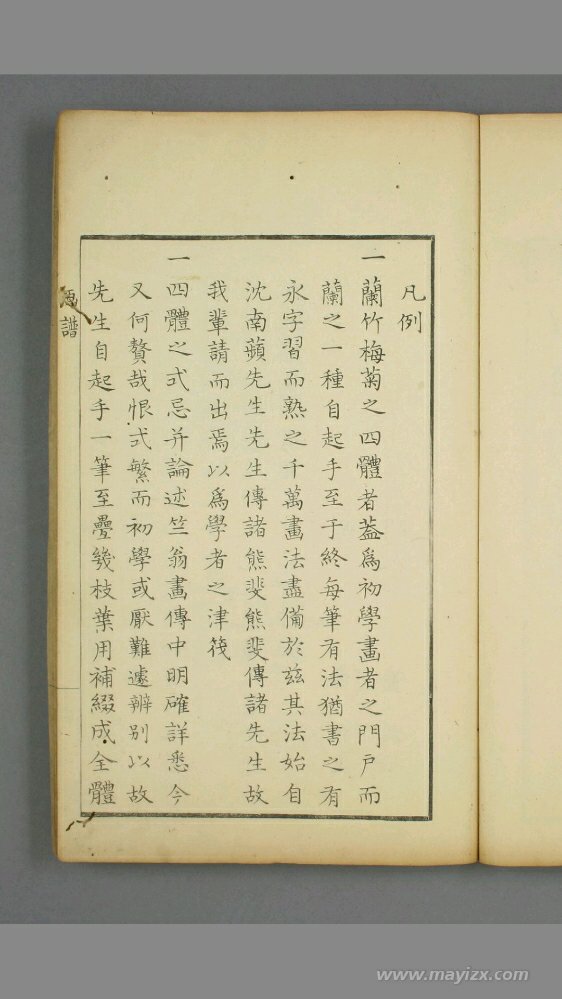 凡例
一 蘭竹梅菊之四體者葢爲初學畫者之門戸而
蘭之一種自起手至于終每筆有法猶書之有
永字習而熟之千萬畫法盡備於玆其法始自
沈南蘋先生先生傳諸熊斐熊斐傳諸先生故
我輩請而出焉以爲學者之津筏
一 四體之式忌并論述竺翁畫傳中明確詳悉今
又何贅哉恨式繁而初學或厭難遽辨別以故
先生自起手一筆至疊幾枝葉用補綴成全體
譜
www.mayizx.com